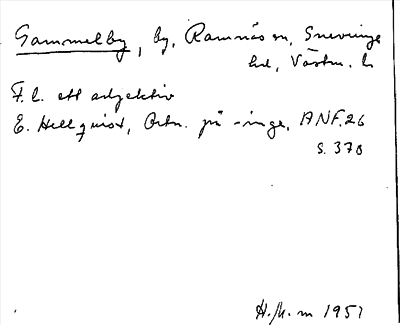 Gammelby, by, Ramnäs sn, Snevringe
hd, Västm. l.
F.l. ett adjektiv
E. Hellquist, Ortn. på -inge, ANF. 26
s. 370
H. M-m 1951